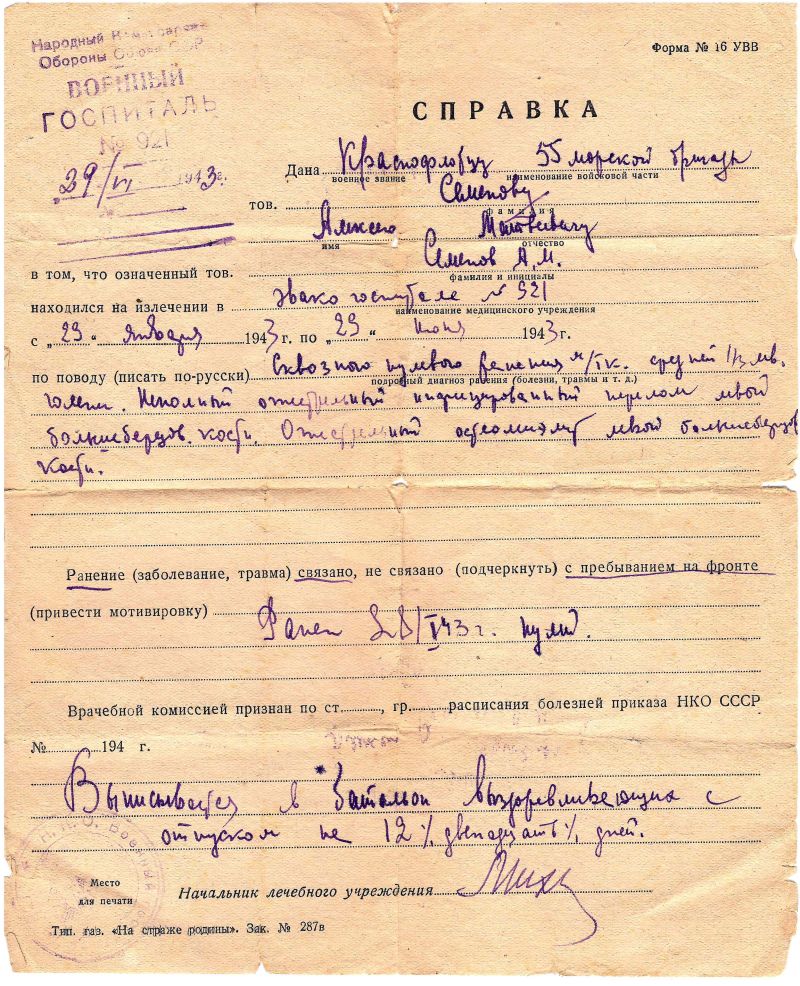 Народный Комиссариат
Обороны Союза ССР
ВОЕННЫЙ
ГОСПИТАЛЬ
№ 921
29/VI 1943г.
Форма № 16 УВВ
СПРАВКА
Дана Краснофлотцу 55 морской бригады
военное звание наименование войсковой части
тов. Семенову
фамилия
Алексею Матвеевичу
имя отчество
в том, что означенный тов. Семенов А.М.
фамилия и инициалы
находился на излечении в эвакогоспитале № 921
наименование медицинского учреждения
с „29“ января 1943г. по „29“ июня 1943г.
по поводу (писать по-русски) Сквозного пулевого ранения м/тк. средней 1/3 лев.
подробный диагноз ранения (болезни, травмы и т. д.)
голени. Неполный огнестрельный инфицированный перелом левой
большеберцов. кости. Огнестрельный остеомиэлит левой большеберцов
кости.
Ранение (заболевание, травма) связано, не связано (подчеркнуть) с пребыванием на фронте
(привести мотивировку)
Ранен 28/I 43 г. пулей.
Врачебной комиссией признан по ст. , гр. расписания болезней приказа НКО СССР
№ 194 г.
Выписывается в батальон выздоравливающих с
отпуском на 12 /, двенадцать /, дней.
Место
для печати
Начальник лечебного учреждения
Тип. газ. «На страже родины». Зак. № 287в